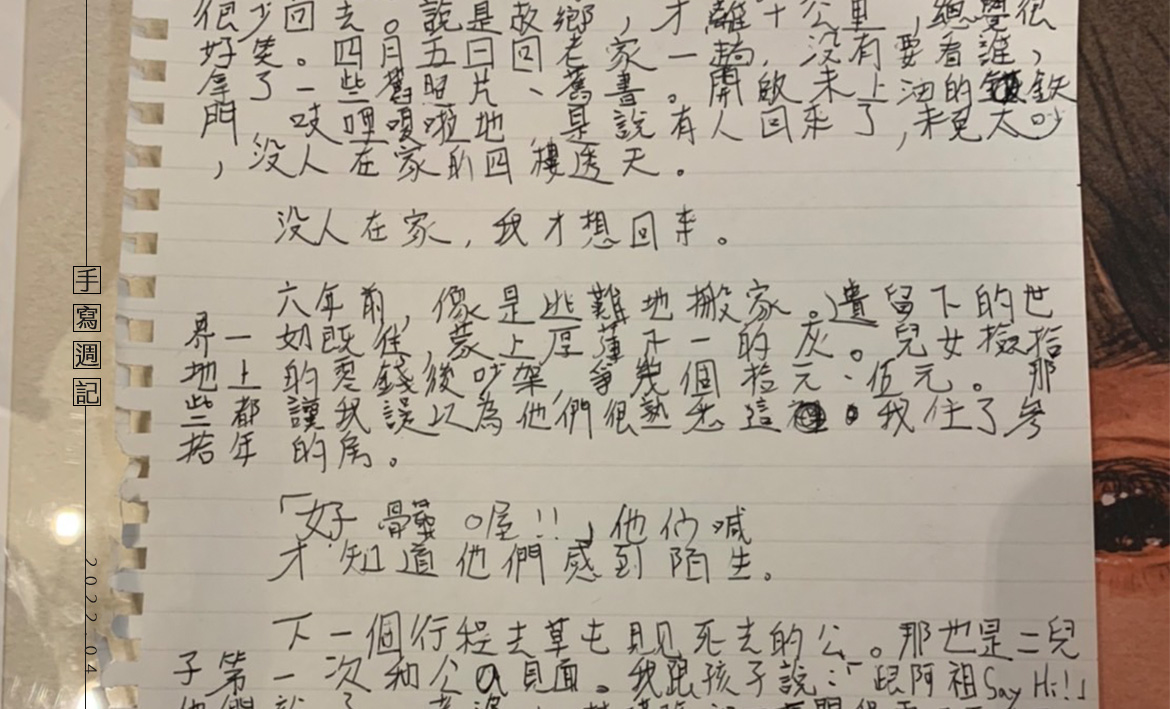 很少回去。說是故鄉，才離十公里，總覺很
好笑。四月五日回老家一趟，沒有要看誰，
拿了一些舊照片、舊書。開啟未上油的鐵
門，吱哩嘎啦地，是說有人回來了，未免太吵
，沒人在家的四樓透天。
沒人在家，我才想回來。
六年前，像是逃難地搬家。遺留下的世
界一如既住，蒙上厚薄不一的灰。兒女撿拾
地上的零錢後吵架，爭幾個拾元、伍元。那
些都讓我誤以為他們很熟悉這裡。我住了參
拾年的房。
「好骯髒喔!!」他们喊
才知道他們感到陌生。
下一個行程去草屯見見死去的公。那也是二兒
子第一次和公的見面。我跟孩子說：「跟阿祖Say Hi!」
手寫週記
2022.04